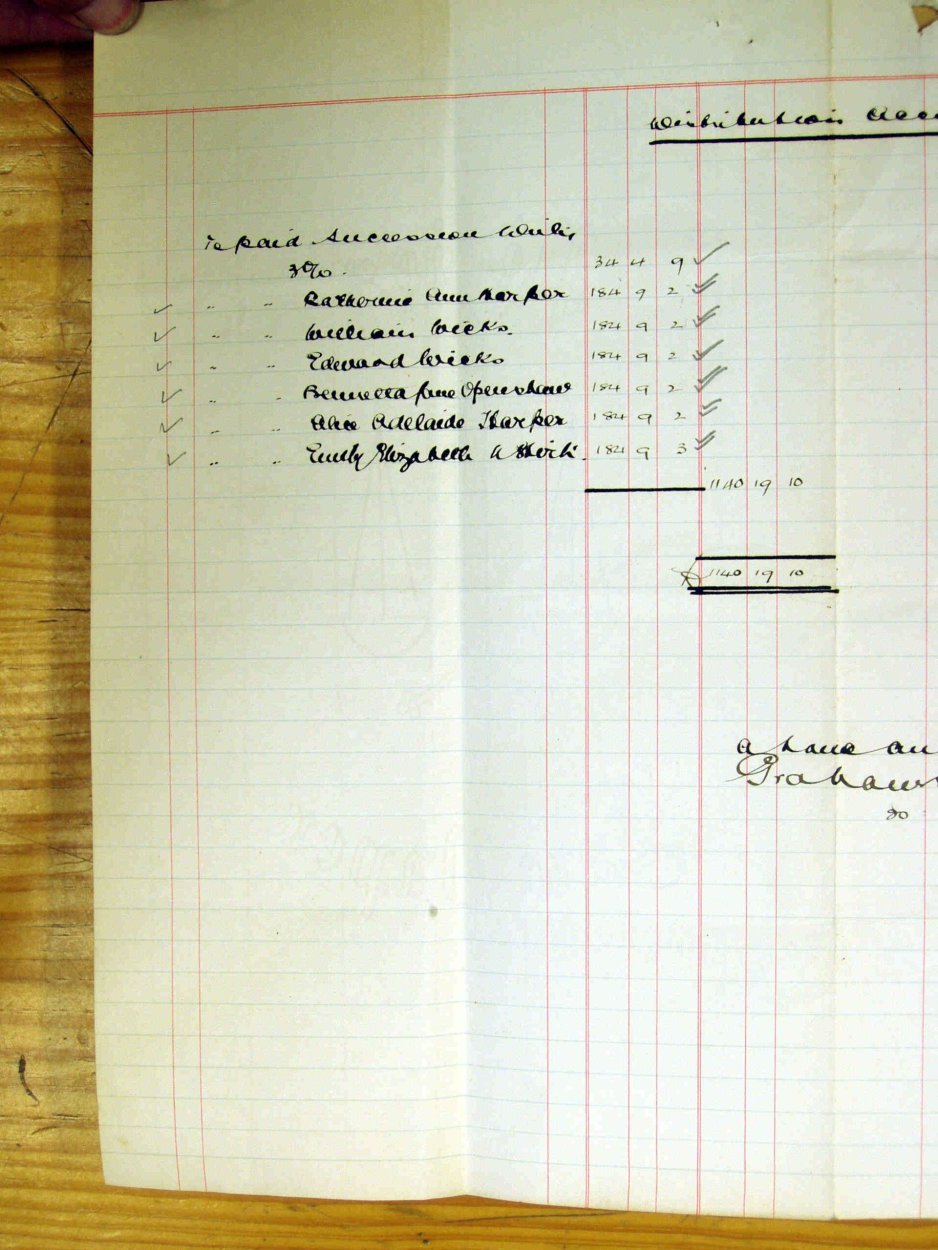 Distribution Acco
To paid Succession Duties
3%. 34 4 9
" " Katherine Ann Harper 184 9 2
" " William Wicks. 184 9 2
" " Edward Wicks 184 9 2
" " Bennetta Jane Openshaw 184 9 2
" " Alice Adelaide Harper 184 9 2
" " Emily Elizabeth A 184 9 3
1140 19 10
1140 19 10
a
Graham